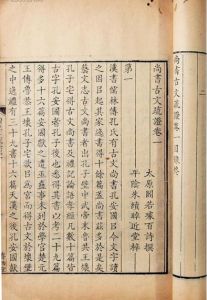 尚書古文疏證卷一目錄終
尚書古文疏證卷一
太原閻若璩百詩撰
平陰朱續晫近堂梓
第一
漢書儒林傳孔氏有古文尚書孔安國以今文字讀
之因以起其家逸書得十餘篇蓋尚書茲多於是矣
藝文志古文尚書者出孔子壁中武帝末魯恭王壞
孔子宅得古文尚書及禮記論語孝經凡數十篇皆
古字孔安國者孔子後也悉得其書以考二十九篇
得多十六篇安國獻之遭巫蠱事未列於學官楚元
王傳魯恭王壞孔子宅欲以爲宮而得古文於壞壁
之中逸禮有三十九書十六篇天漢之後孔安國獻